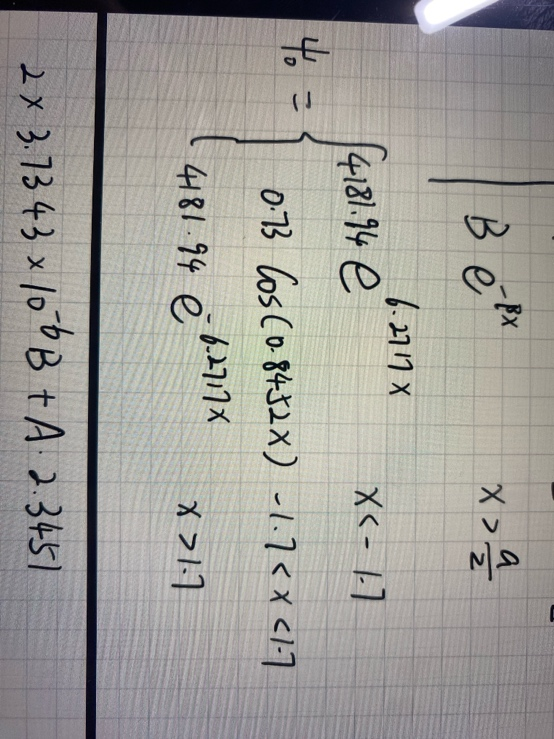 B e^{-βx} x > a/2
ψ₀ = { 4181.94 e^{6.2717x} x < -1.7
0.73 cos(0.8452x) -1.7 < x < 1.7
4181.94 e^{-6.2717x} x > 1.7
2 × 3.7343 × 10^{-6} B + A · 2.3451